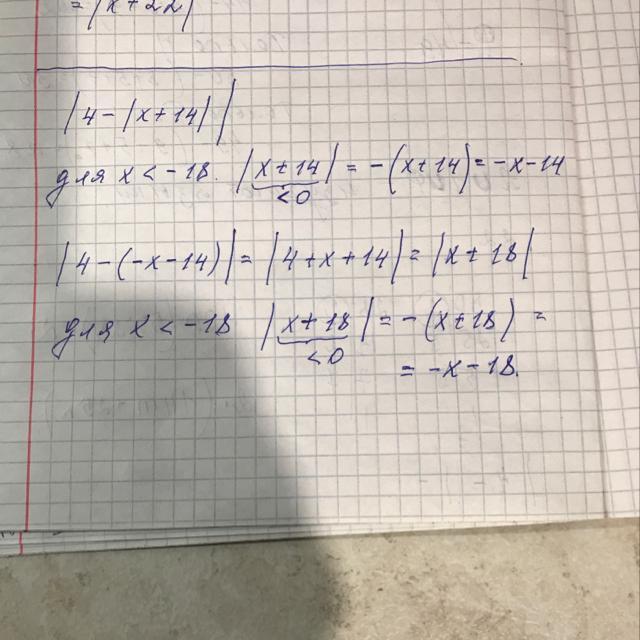 = |x+22|
|4-|x+14||
для x < -18. |x+14| = -(x+14) = -x-14
<0
|4-(-x-14)| = |4+x+14| = |x+18|
для x < -18 |x+18| = -(x+18) =
<0
= -x-18.